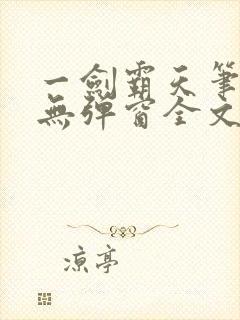 一劍霸天筆
無彈窗全文
涼亭